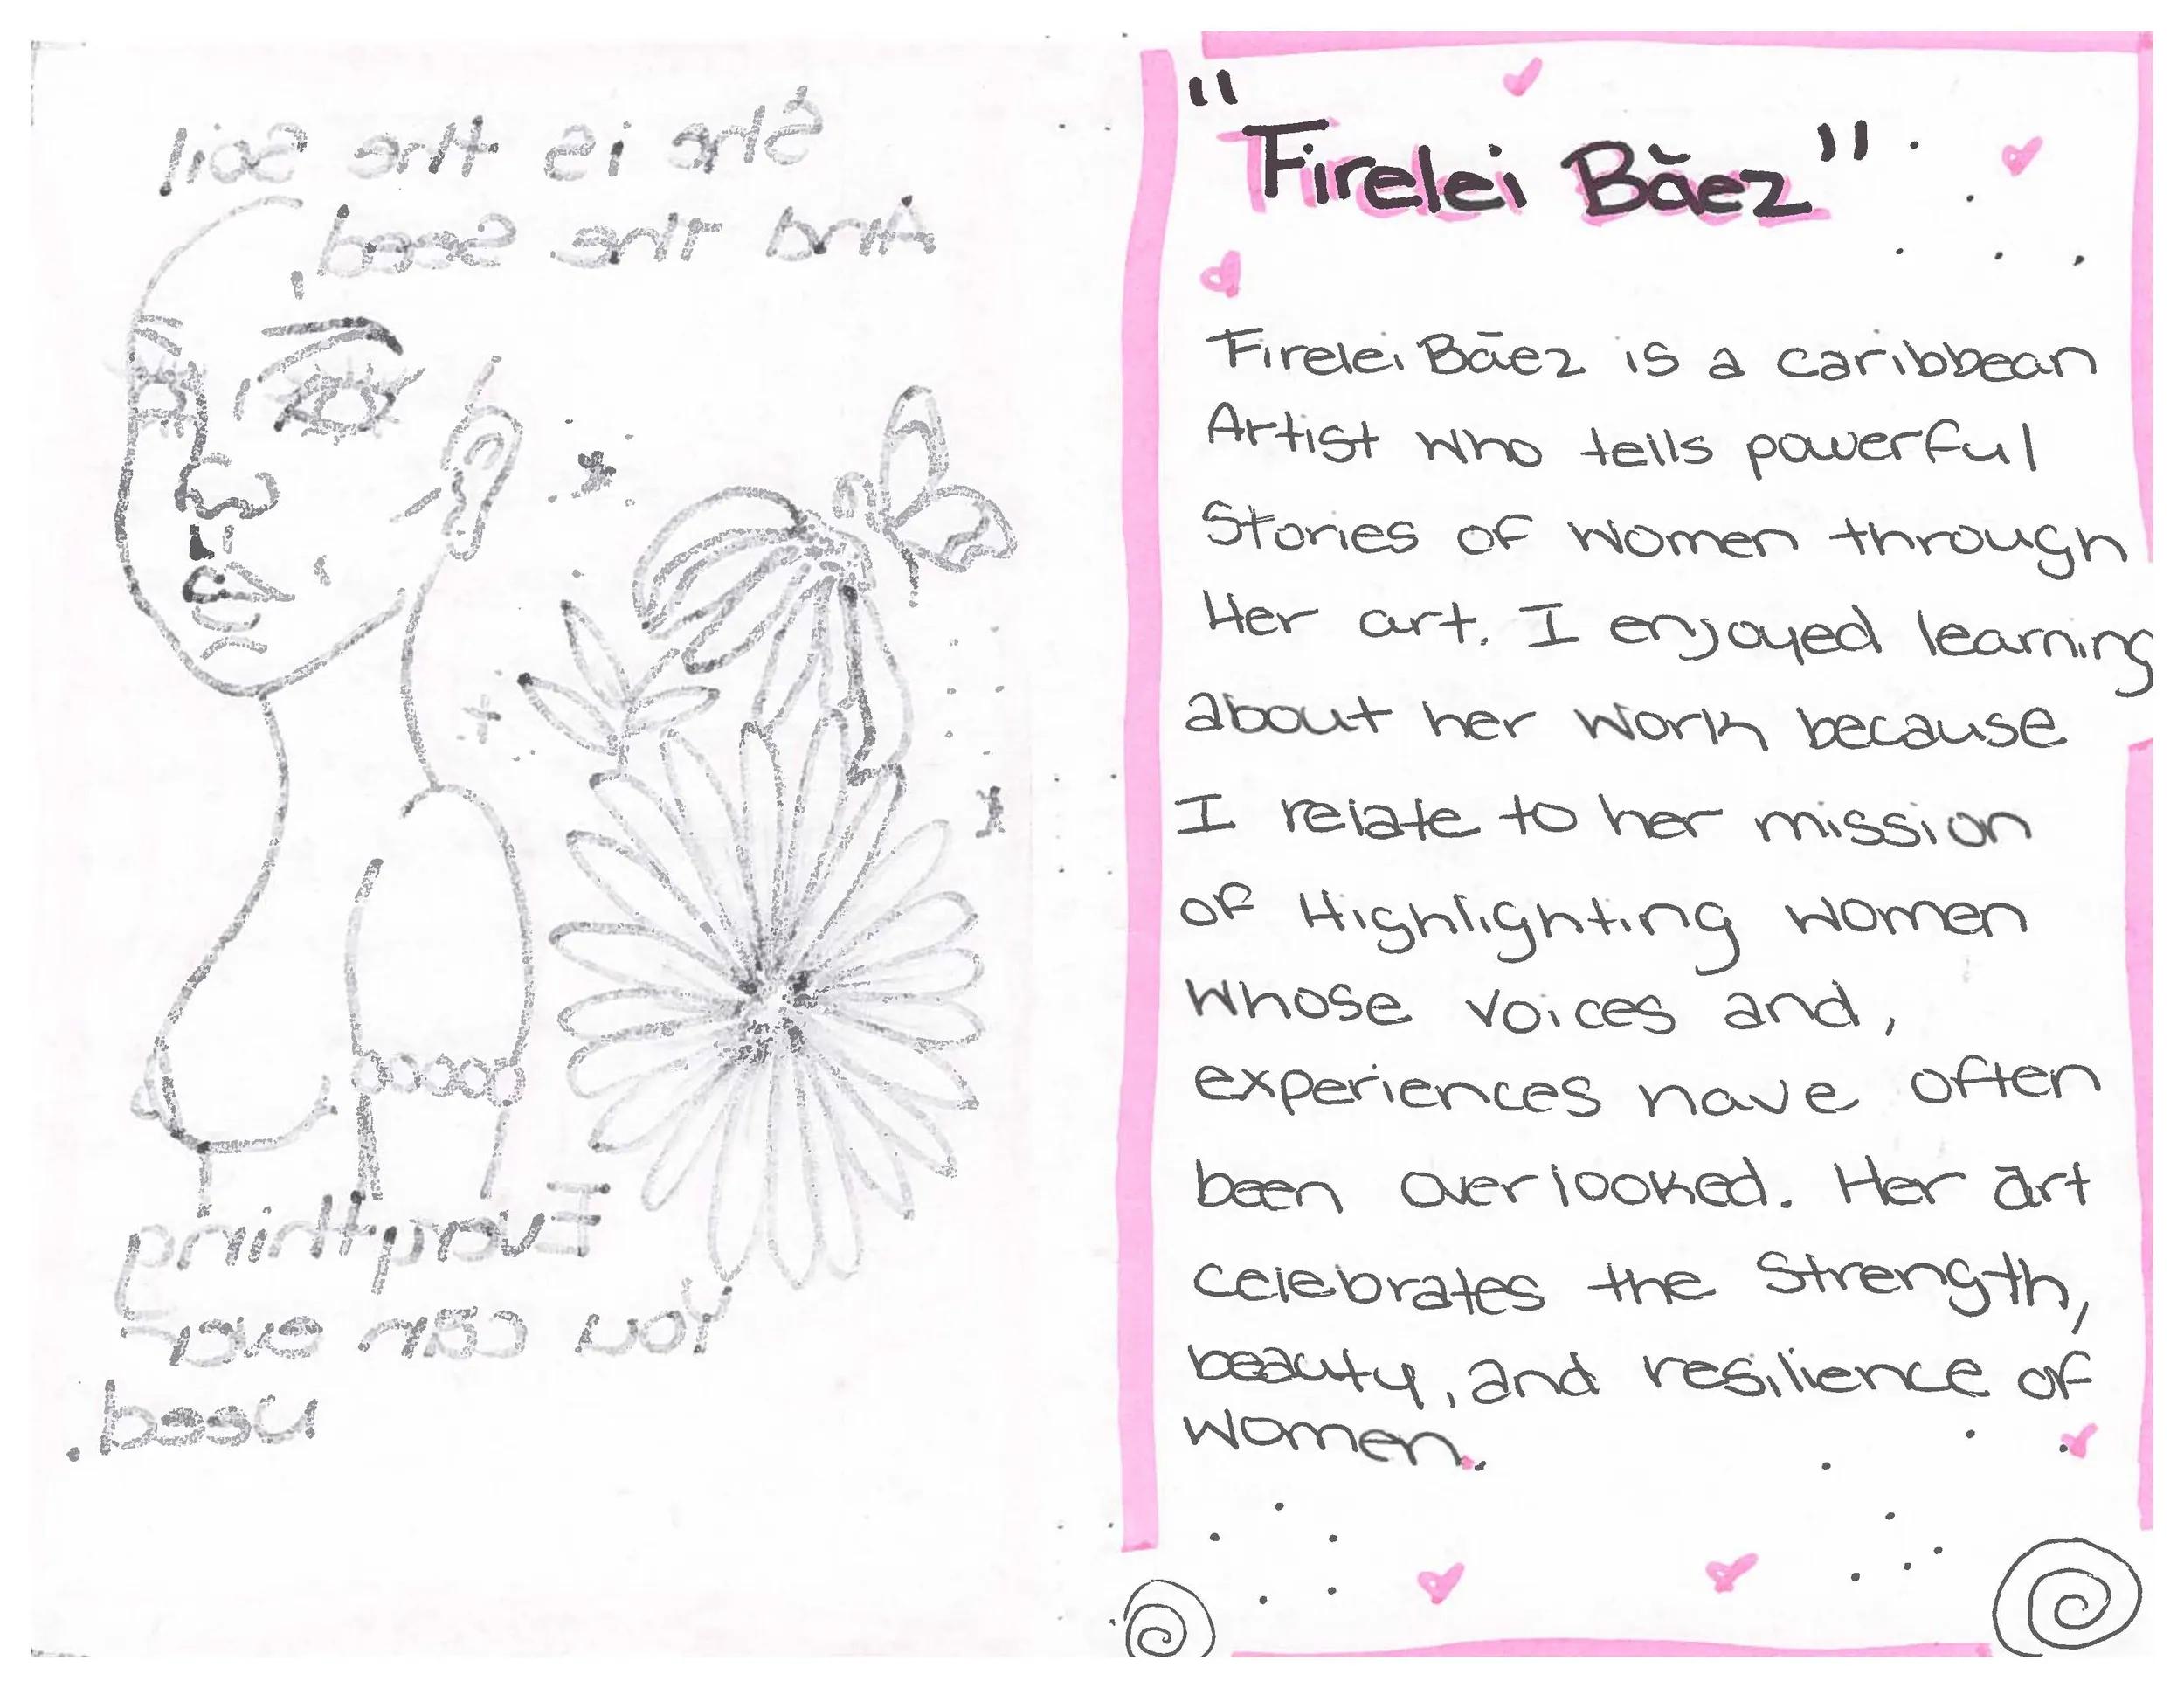 She is the Soil
And The Seed,
Everything
You can ever
need.
"Firelei Băez"
Firelei Bāez is a caribbean
Artist who tells powerful
Stories of women through
Her art. I enjoyed learning
about her work because
I relate to her mission
of Highlighting women
whose voices and,
experiences have often
been overlooked. Her art
celebrates the strength,
beauty, and resilience of
women.